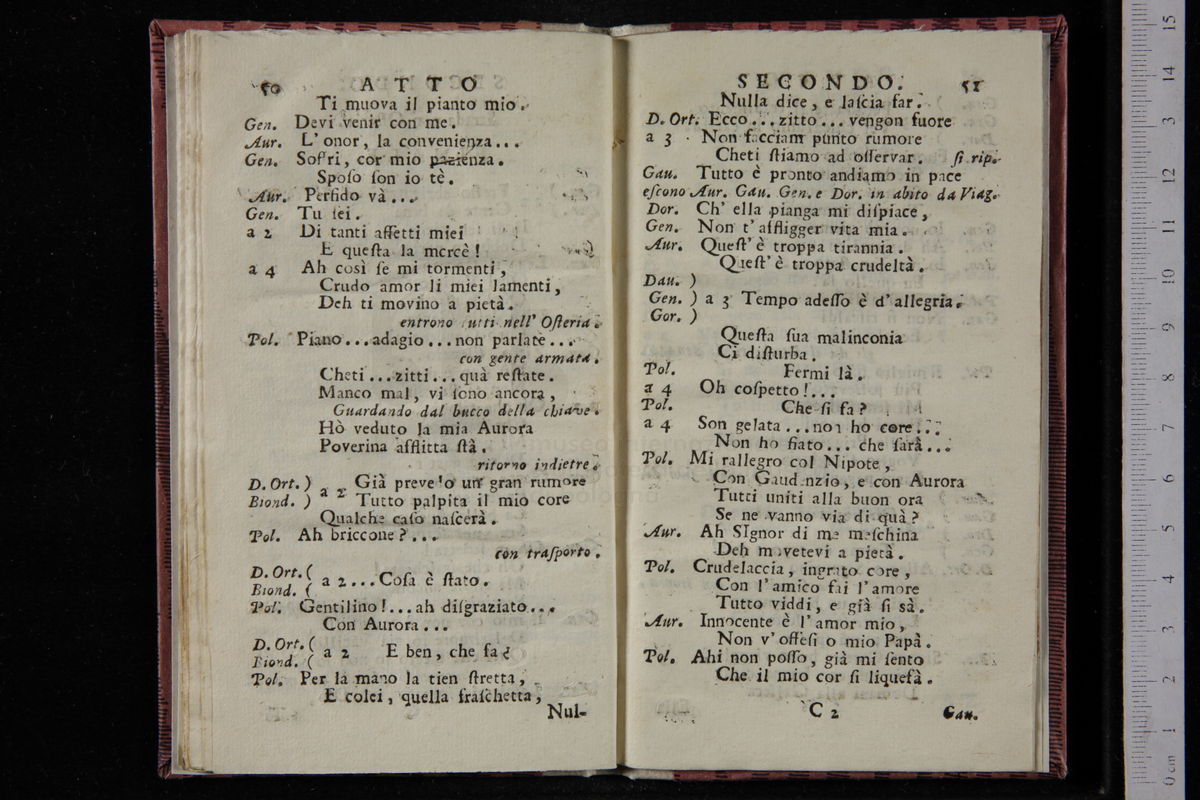 50 ATTO
Ti muova il pianto mio.
Gen. Devi venir con me.
Aur. L'onor, la convenienza...
Gen. Soffri, cor mio pazienza.
Spoſo ſon io tè.
Aur. Perfido và...
Gen. Tu ſei.
a 2 Di tanti affetti miei
E queſta la mercè!
a 4 Ah così ſe mi tormenti,
Crudo amor li miei lamenti,
Deh ti movino a pietà.
entrono tutti nell' Oſteria.
Pol. Piano...adagio...non parlate...
con gente armata.
Cheti...zitti...quà reſtate.
Manco mal, vi ſono ancora,
Guardando dal bucco della chiave.
Hò veduto la mia Aurora
Poverina afflitta ſtà.
ritorno indietre.
D. Ort.) a 2 Già prevedo un gran rumore
Biond.) Tutto palpita il mio core
Qualche caſo naſcerà.
Pol. Ah briccone?...
con traſporto.
D. Ort. (
Biond. ( a 2...Coſa è ſtato.
Pol. Gentilino!...ah diſgraziato...
Con Aurora...
D. Ort. (
Biond. ( a 2 E ben, che fa?
Pol. Per la mano la tien ſtretta,
E colei, quella fraſchetta,
Nul-
SECONDO. 51
Nulla dice, e laſcia far.
D. Ort. Ecco...zitto...vengon fuore
a 3 Non facciam punto rumore
Cheti ſtiamo ad oſſervar. ſi rip.
Gau. Tutto è pronto andiamo in pace
eſcono Aur. Gau. Gen. e Dor. in abito da Viag.
Dor. Ch' ella pianga mi diſpiace,
Gen. Non t'affligger vita mia.
Aur. Queſt' è troppa tirannia.
Queſt' è troppa crudeltà.
Dau. )
Gen. ) a 3 Tempo adeſſo è d'allegria.
Gor. )
Queſta ſua malinconia
Ci diſturba.
Pol. Fermi là.
a 4 Oh coſpetto!...
Pol. Che ſi fa?
a 4 Son gelata...non ho core...
Non ho fiato...che ſarà...
Pol. Mi rallegro col Nipote,
Con Gaudenzio, e con Aurora
Tutti uniti alla buon ora
Se ne vanno via di quà?
Aur. Ah SIgnor di me meſchina
Deh movetevi a pietà.
Pol. Crudelaccia, ingrato core,
Con l'amico fai l'amore
Tutto viddi, e già ſi sà.
Aur. Innocente è l'amor mio,
Non v'offeſi o mio Papà.
Pol. Ahi non poſſo, già mi ſento
Che il mio cor ſi liquefà.
C 2 Gau.